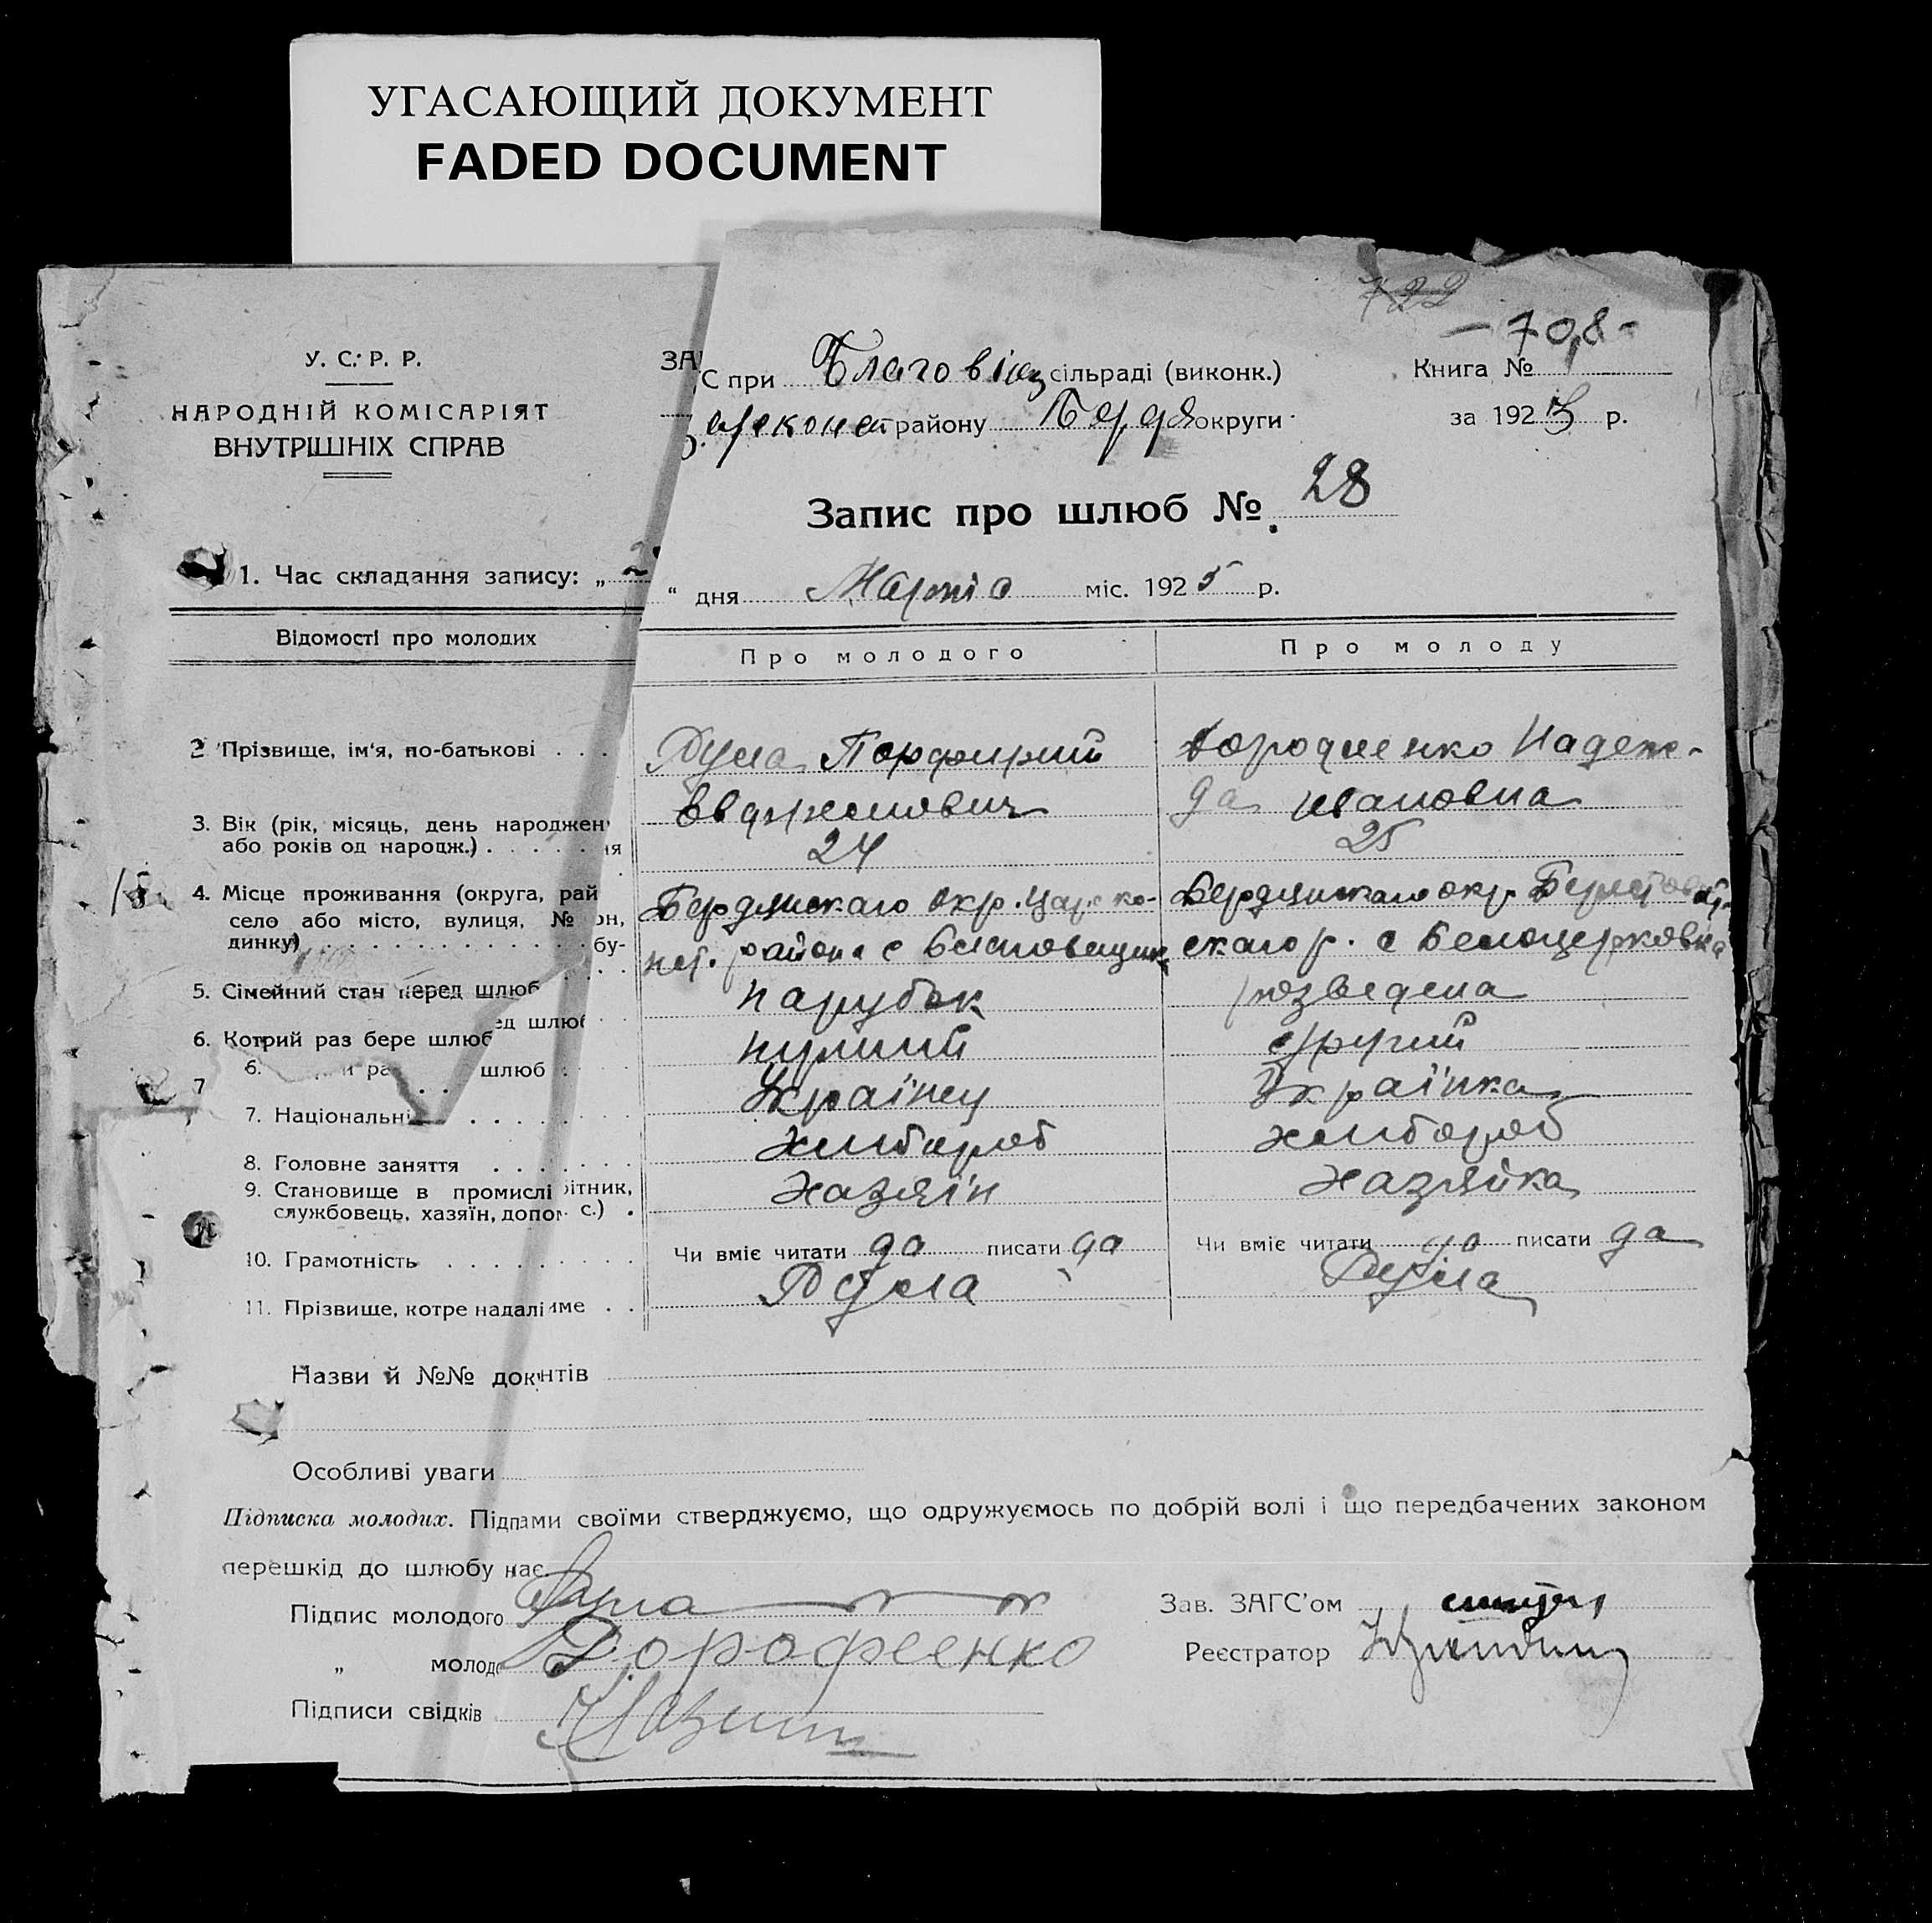 УГАСАЮЩИЙ ДОКУМЕНТ
FADED DOCUMENT
722
У. С. Р. Р.
НАРОДНІЙ КОМІСАРІЯТ
ВНУТРІШНІХ СПРАВ
ЗА
С при Благовіщ сільраді (виконк.)
району Бердя округи
Книга № 708
за 1925 р.
Запис про шлюб № 28
1. Час складання запису: „ 2
“ дня Марта міс. 1925 р.
Відомості про молодих
Про молодого
Про молоду
2 Прізвище, ім'я, по-батькові
Дума Порфирий
Надеж-
да Ивановна
3. Вік (рік, місяць, день народжен
або років од народж.) ня
24
25
4. Місце проживання (округа, рай он,
село або місто, вулиця, № бу-
динку)
Бердянскаго окр. Цареко-
нст. района с Благовещинк
Бердянскаго окр. Берестовет-
скаго р. с Белоцерковка
5. Сімейний стан перед шлюб
парубок
розведена
ед шлюб
6. Котрий раз бере шлюб
перший
другий
6. ра шлюб
7
7. Національні
Українец
Українка
8. Головне заняття
хлибороб
хлибороб
9. Становище в промислі бітник,
службовець, хазяїн, допом с.)
Хазяін
Хазяйка
10. Грамотність
Чи вміє читати да писати да
Чи вміє читати да писати да
11. Прізвище, котре надалі име
Дума
Дума
Назви й №№ док нтів
Особливі уваги
Підписка молодих. Підпами своїми стверджуємо, що одружуємось по добрій волі і що передбачених законом
перешкід до шлюбу має.
Підпис молодого Дума
„ молодо Дорофеенко
Підписи свідків
Зав. ЗАГС'ом
Реєстратор